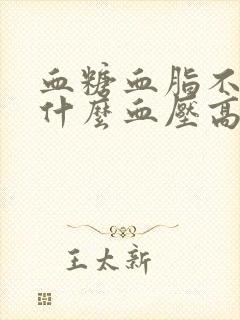 血糖血脂不
什麼血壓高
王太新